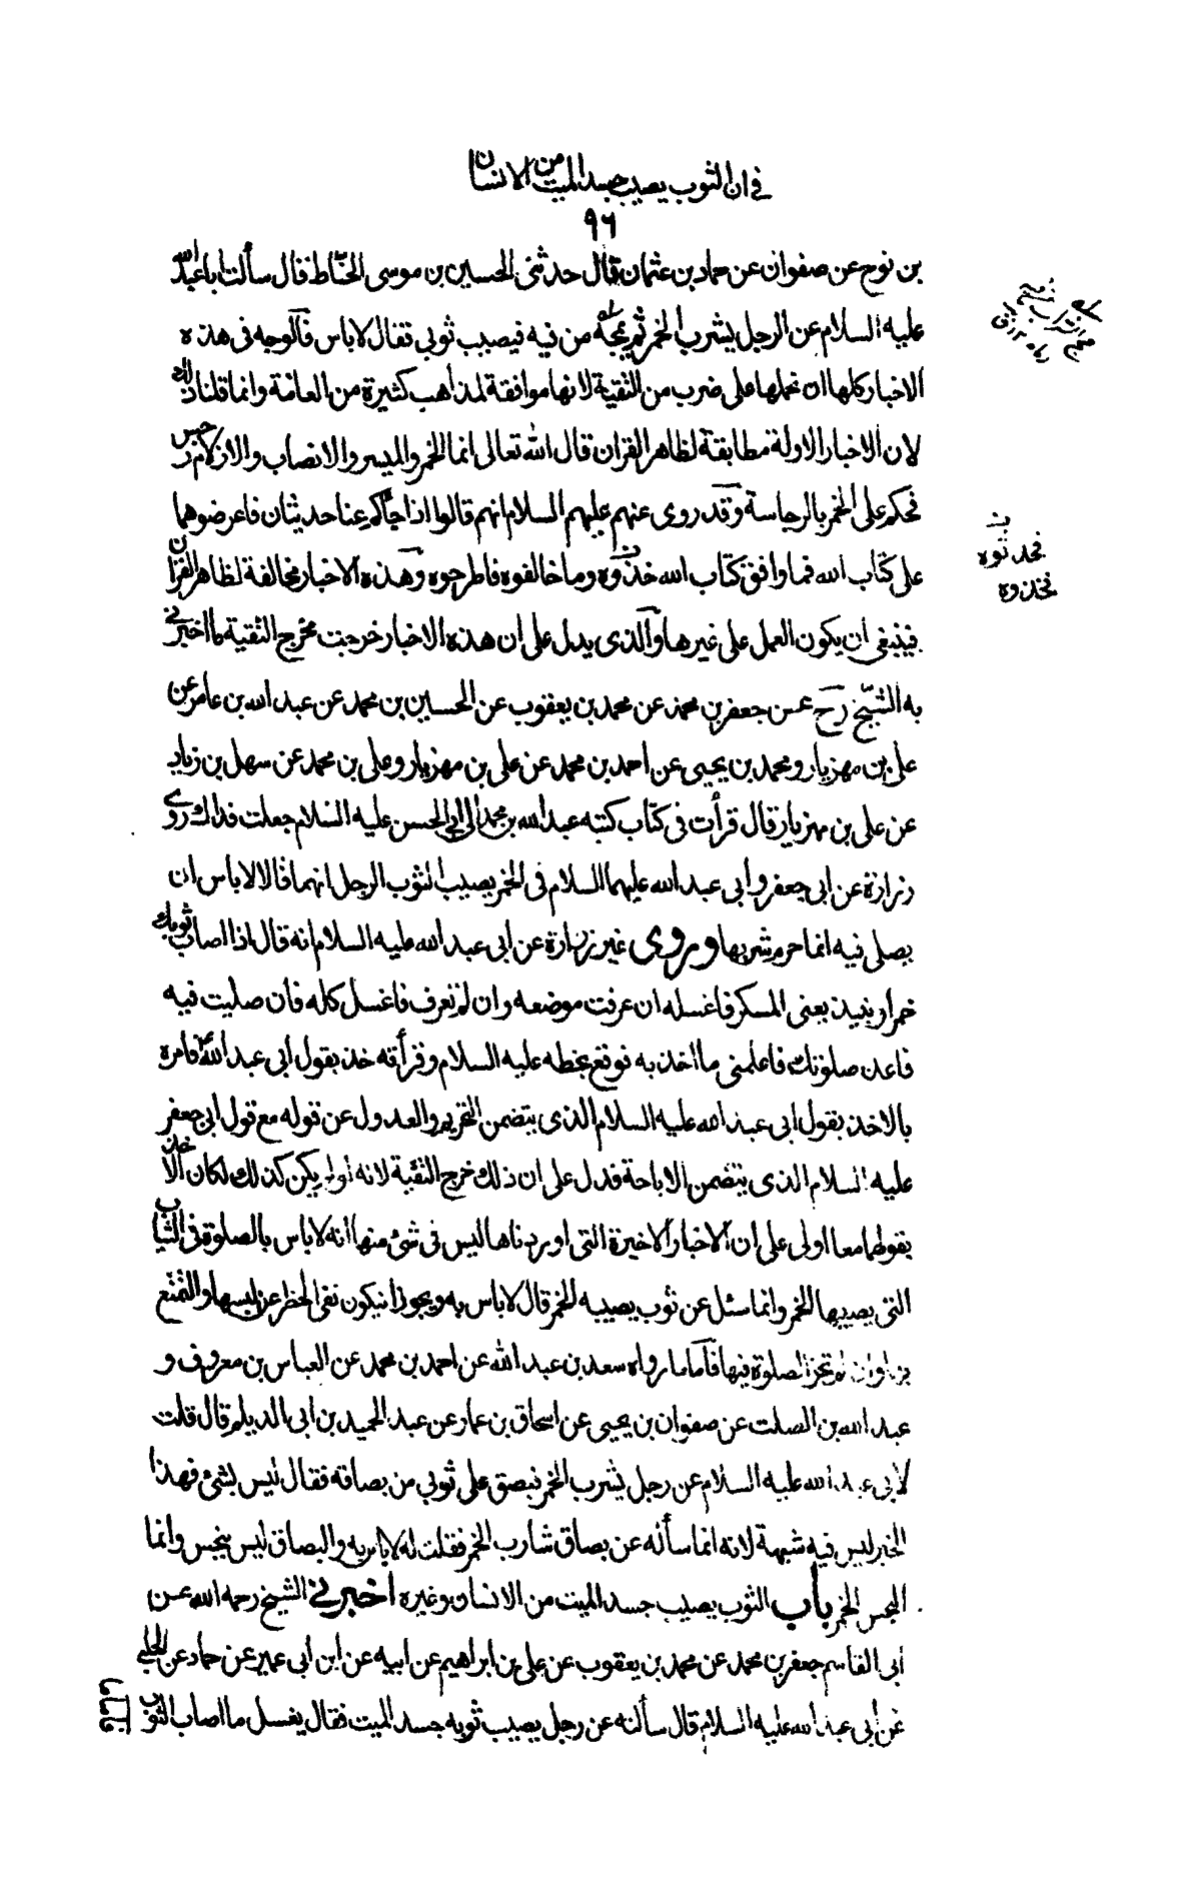 في ان الثوب يصيب جسد الميت من الانسان
٩٦
بن نوح عن صفوان عن حماد بن عثمان قال حدثنى الحسين بن موسى الحنّاط قال سألت ابا عبد الله
عليه السلام عن الرجل يشرب الخمر ثم يمجه من فيه فيصيب ثوبى فقال لا باس فآلوجه فى هذه
الاخبار كلها ان نحملها على ضرب من التقية لانها موافقة لمذاهب كثيرة من العامة وانما قلنا ذلك
لان الاخبار الاولة مطابقة لظاهر القران قال الله تعالى انما الخمر والميسر والانصاب والازلام رجس
فحكم على الخمر بالرجاسة وقد روى عنهم عليهم السلام انهم قالوا اذا جاءكم عنا حديثان فاعرضوهما
على كتاب الله فما وافق كتاب الله خذوه وما خالفوه فاطرحوه وهذه الاخبار مخالفة لظاهر القران
فينبغى ان يكون العمل على غيرها والذى يدل على ان هذه الاخبار خرجت مخرج التقية ما اخبرنى
به الشيخ رح عن جعفر بن محمد عن محمد بن يعقوب عن الحسين بن محمد عن عبد الله بن عامر عن
على بن مهزيار ومحمد بن يحيى عن احمد بن محمد عن على بن مهزيار وعلى بن محمد عن سهل بن زياد
عن على بن مهزيار قال قرأت فى كتاب كتبه عبد الله بن محمد الى ابى الحسن عليه السلام جعلت فداك روى
زرارة عن ابى جعفر وابى عبد الله عليهما السلام فى الخمر يصيب الثوب الرجل انهما قالا لا باس ان
يصلى فيه انما حرم شربها وروى غير زرارة عن ابى عبد الله عليه السلام انه قال اذا اصاب ثوبك
خمر او نبيذ يعنى المسكر فاغسله ان عرفت موضعه وان لم تعرف فاغسل كله فان صليت فيه
فاعد صلوتك فاعلمنى ما اخذ به فوقع بخطه عليه السلام وقرأته خذ بقول ابى عبد الله ع فامره
بالاخذ بقول ابى عبد الله عليه السلام الذى يتضمن التحريم والعدول عن قوله مع قول ابى جعفر
عليه السلام الذى يتضمن الاباحة فدل على ان ذلك خرج التقية لانه لو لم يكن كذلك لكان الاخذ
بقولهما معا اولى على ان الاخبار الاخيرة التى اوردناها ليس فى شئ منها انه لا باس بالصلوة فى الثياب
التى يصيبها الخمر وانما سئل عن ثوب يصيبه الخمر قال لا باس به ويجوز ان يكون نفى الحظر عن لبسها والتمتّع
بها وان لم تجز الصلوة فيها فآما ما رواه سعد بن عبد الله عن احمد بن محمد عن العباس بن معروف و
عبد الله بن الصلت عن صفوان بن يحيى عن اسحاق بن عمار عن عبد الحميد بن ابى الديلم قال قلت
لابى عبد الله عليه السلام عن رجل يشرب الخمر فبصق على ثوبى من بصاقه فقال ليس بشئ فهذا
الخبر ليس فيه شبهة لانه انما سأله عن بصاق شارب الخمر فقلت له لا باس به والبصاق ليس بنجس وانما
النجس الخمر باب الثوب يصيب جسد الميت من الانسان وغيره اخبرنى الشيخ رحمه الله عن
ابى القاسم جعفر بن محمد عن محمد بن يعقوب عن على بن ابراهيم عن ابيه عن ابن ابى عمير عن حماد عن الحلبى
عن ابى عبد الله عليه السلام قال سألته عن رجل يصيب ثوبه جسد الميت فقال يغسل ما اصاب الثوب
فخذ ثوه
فخذوه